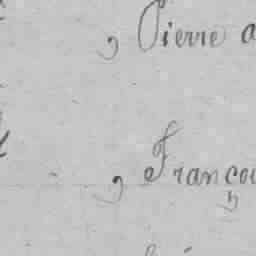 , Pierre a
, Françoi